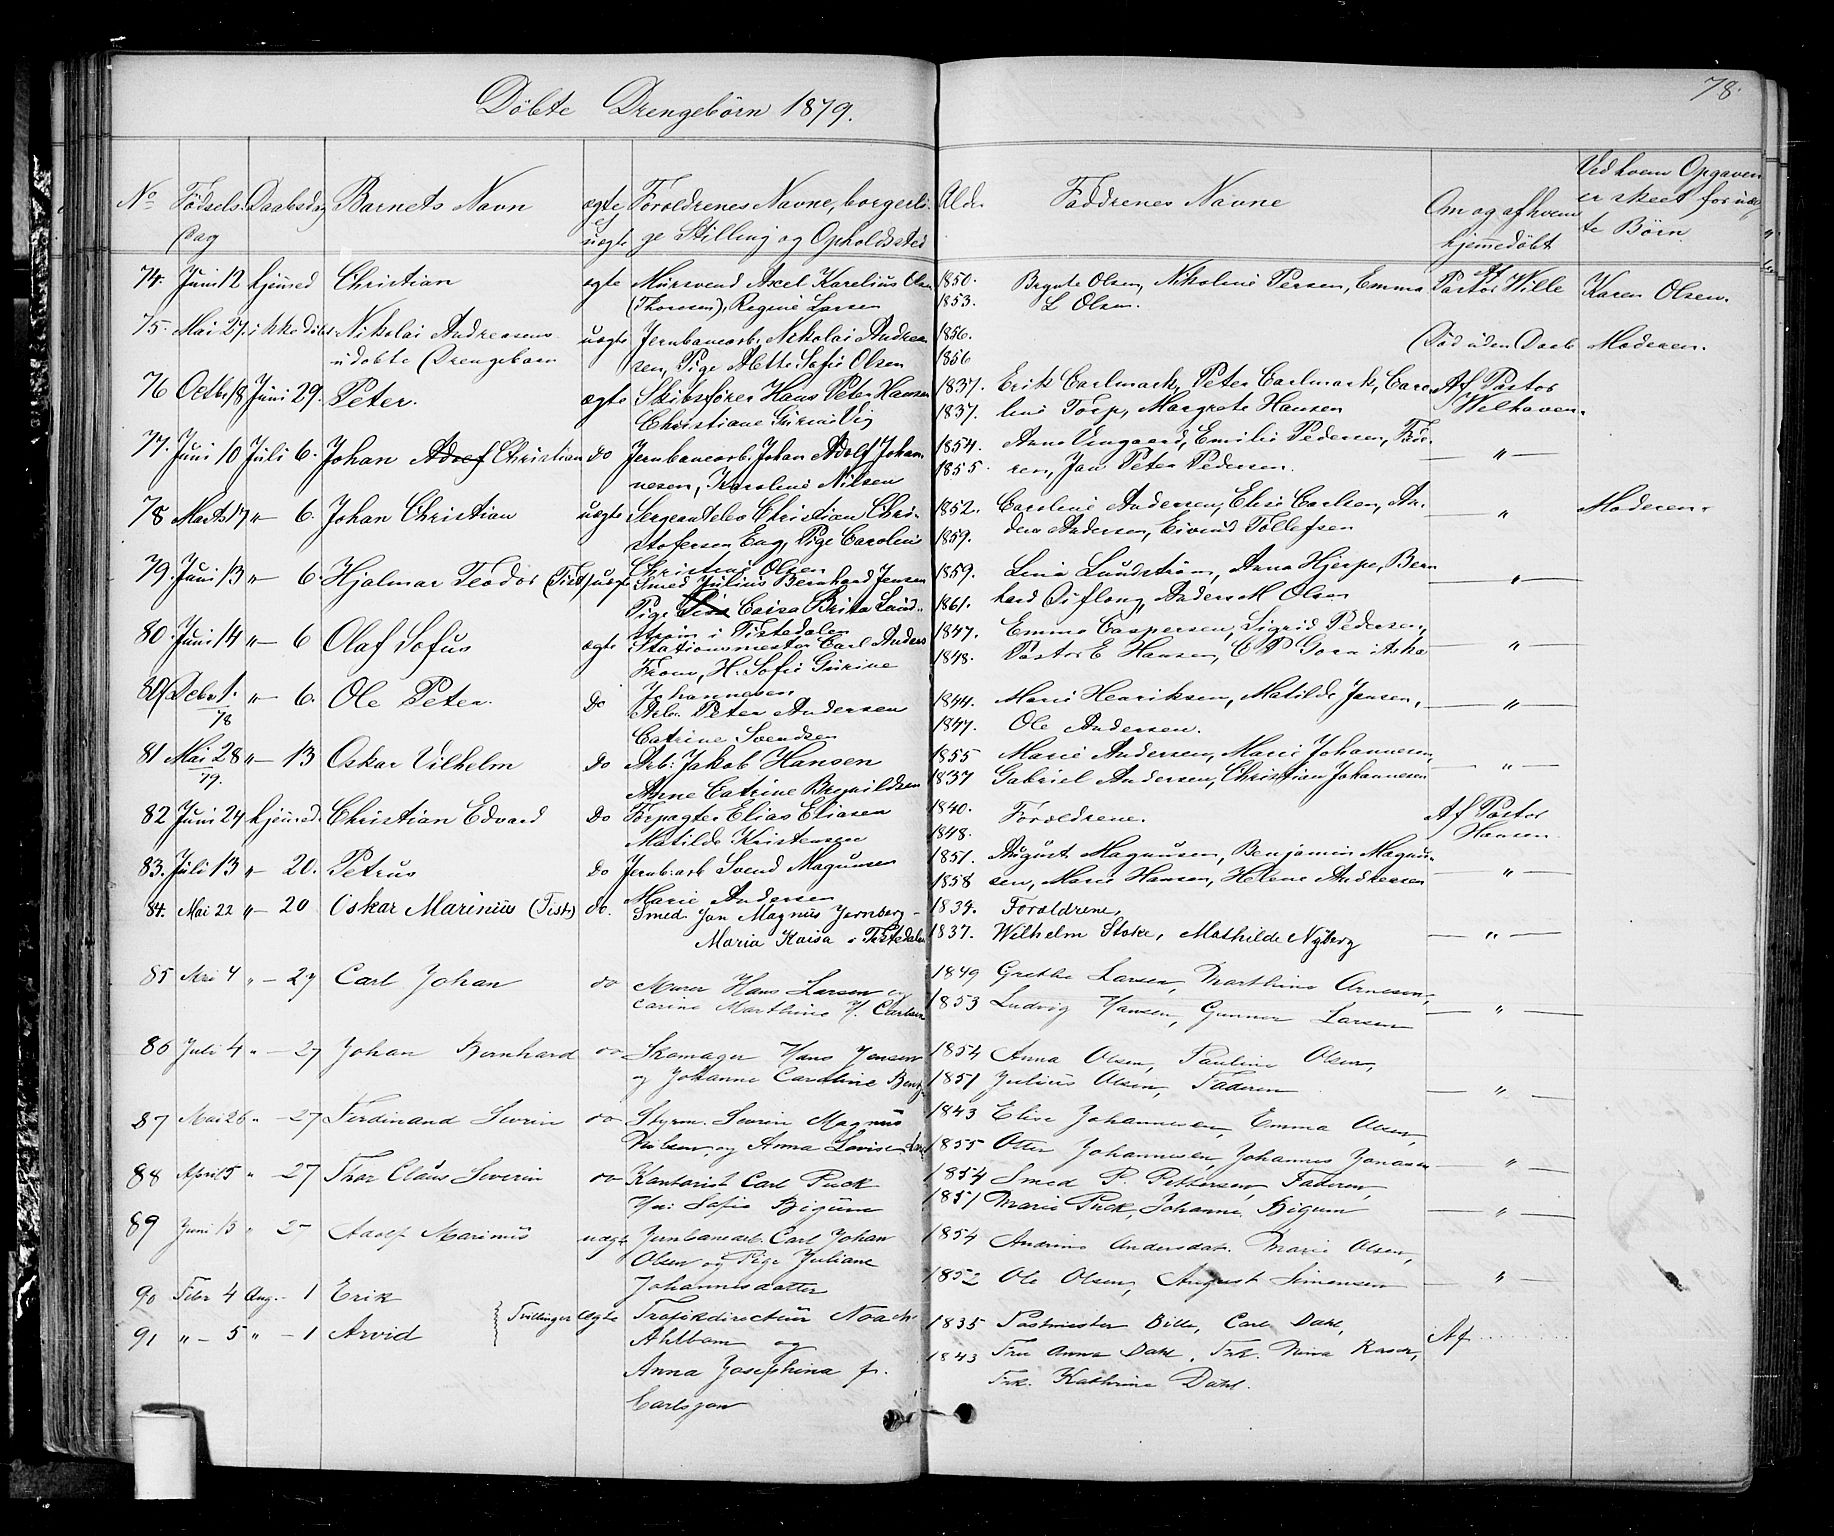 78.
Döbte Drengebörn 1879.
No Födsels Dag Daabsdag Barnets Navn ægte el uægte Forældrenes Navne, borgerlige Stilling og Opholdssted Alder Faddrenes Navne Om og af hvem hjemmedöbt Ved hvem Opgaven er skeet for uægte Börn
74. Juni 12 hjemed Christian ægte Mursvend Axel Karelius Olsen 1850. Olsen, Nikoline Persen, Emma Af Pastor Wille Karen Olsen.
(Thoresen), Regine Larsen 1853. L Olsen.
75. Mai 27. ikke döbt Nikolai Andreasens uægte Jernbanearb. Nikolai Andrea- 1856. Död uden Daab Moderen.
udöbte Drengebarn sen, Pige Mette Sofie Olsen 1856
76 Octbr. 18 Juni 29. Peter. ægte Skibsförer Hans Peter Hansen 1837. Erik Carlmark, Peter Carlmark, Caro- Af Pastor
Christiane Gurine Vig 1837. line Torp, Margrete Hansen Welhaven.
77. Juni 10 Juli 6. Johan Adolf Christian do Jernbanearb. Johan Adolf Johan- 1854. Anne Pedersen, Emilie Pedersen, För- — " —
nesen, Karoline Nilsen 1855. ren, Jan Peter Pedersen.
78 Marts 17 " — 6. Johan Christian uægte Sergeantelev Christian Chri- 1852. Caroline Andersen, Elise Carlsen, An- — " — Moderen.
stofersen Eng, Pige Caroline 1859. Andersen, Eivind Tollefsen
Christine Olsen
79. Juni 13 " — 6. Hjalmar Teodor (Tist) uægte Smed Julius Bernhard Jensen 1859. Lina Lundström, Anna Hjerpe, Bern- — " —
Pige Caisa Brita Lund- 1861. hard Anders M Olsen
ström i Tistedalen
80. Juni 14 " — 6 Olaf Sofus ægte Stationsmester Carl Anders 1847. Emma Caspersen, Sigrid Pedersen, — " —
From, H. Sofie Gurine 1848. Pastor E Hansen, C P
Johannesen
80/ Debr 1. " — 6. Ole Peter. Do Arb. Peter Andersen 1844. Marie Henriksen, Matilde Jansen, — " —
78 Catrine Svendsen 1847. Ole Andersen.
81 Mai 28 " — 13 Oskar Vilhelm Do Arb. Jakob Hansen 1855 Marie Andersen, Marie Johannesen, — " —
79. Anne Catrine 1837 Gabriel Andersen, Christian Johannesen
82 Juni 24 hjemed. Christian Edvard Do Forpagter Elias Eliasen 1840. Forældrene. Af Pastor
Matilde Kristensen 1848. Hansen.
83. Juli 13 " — 20. Petrus Do Jernb.arb Svend Magnusen 1851. August Magnusen, Benjamin Magnu- — " —
Marie Andersen 1858 sen, Marie Hansen, Helene Andresen
84. Mai 22 " — 20 Oskar Marinius (Tist.) do. Smed. Jan Magnus Jernberg — 1839. Forældrene,
Maria Kaisa i Tistedalen 1837. Wilhelm Stake, Mathilde Nyberg — " —
85 Mai 4 " — 27 Carl Johan do Murer Hans Larsen og 1849 Grethe Larsen, Marthine Arnesen,
Carine Marthine H. Carlsen 1853 Ludvig Hansen, Gunner Larsen — " —
86 Juli 4 " — 27 Johan Bernhard do Skomager Hans Jensen 1854 Anna Olsen, Pauline Olsen,
og Johanne Caroline 1851 Julius Olsen, Faderen — " —
87 Mai 26 " — 27 Ferdinand Severin do Styrm. Severin Magnus 1843 Elise Johannesen, Emma Olsen,
Nielsen, og Anna Lovise 1855 Otter Johannesen, Johannes Jonasen — " —
88 April 5 " — 27 Thor Claus Severin do Kontorist Carl Puck 1854 Smed P. Pettersen, Faderen,
Sofie Bigum 1851 Marie Puck, Johanne Bigum — " —
89 Juni 15 " — 27 Adolf Marinus uægte Jernbanearb. Carl Johan 1854 Andrine Andersdat. Marie Olsen,
Olsen og Pige Juliane 1852 Ole Olsen, August Simensen — " —
Johannesdatter
90 Febr 4 Aug. — 1 Erik Tvillinger ægte Trafikdirecteur Noach 1835 Postmester Bille, Carl Dahl, Af
91 " — 5 " — 1 Arvid Ahlbom og 1843 Fru Anna Dahl, Frk. Nina Rasch,
Anna Josephina f. Frk. Kathrine Dahl.
Carlsson